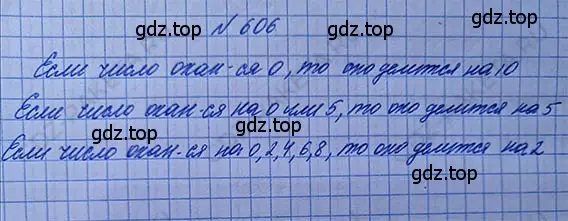 N 606
gdz.top
Если число окан-ся 0, то оно делится на 10
gdz.top
Если число окан-ся на 0 или 5, то оно делится на 5
gdz.top
Если число окан-ся на 0, 2, 4, 6, 8, то оно делится на 2
gdz.top